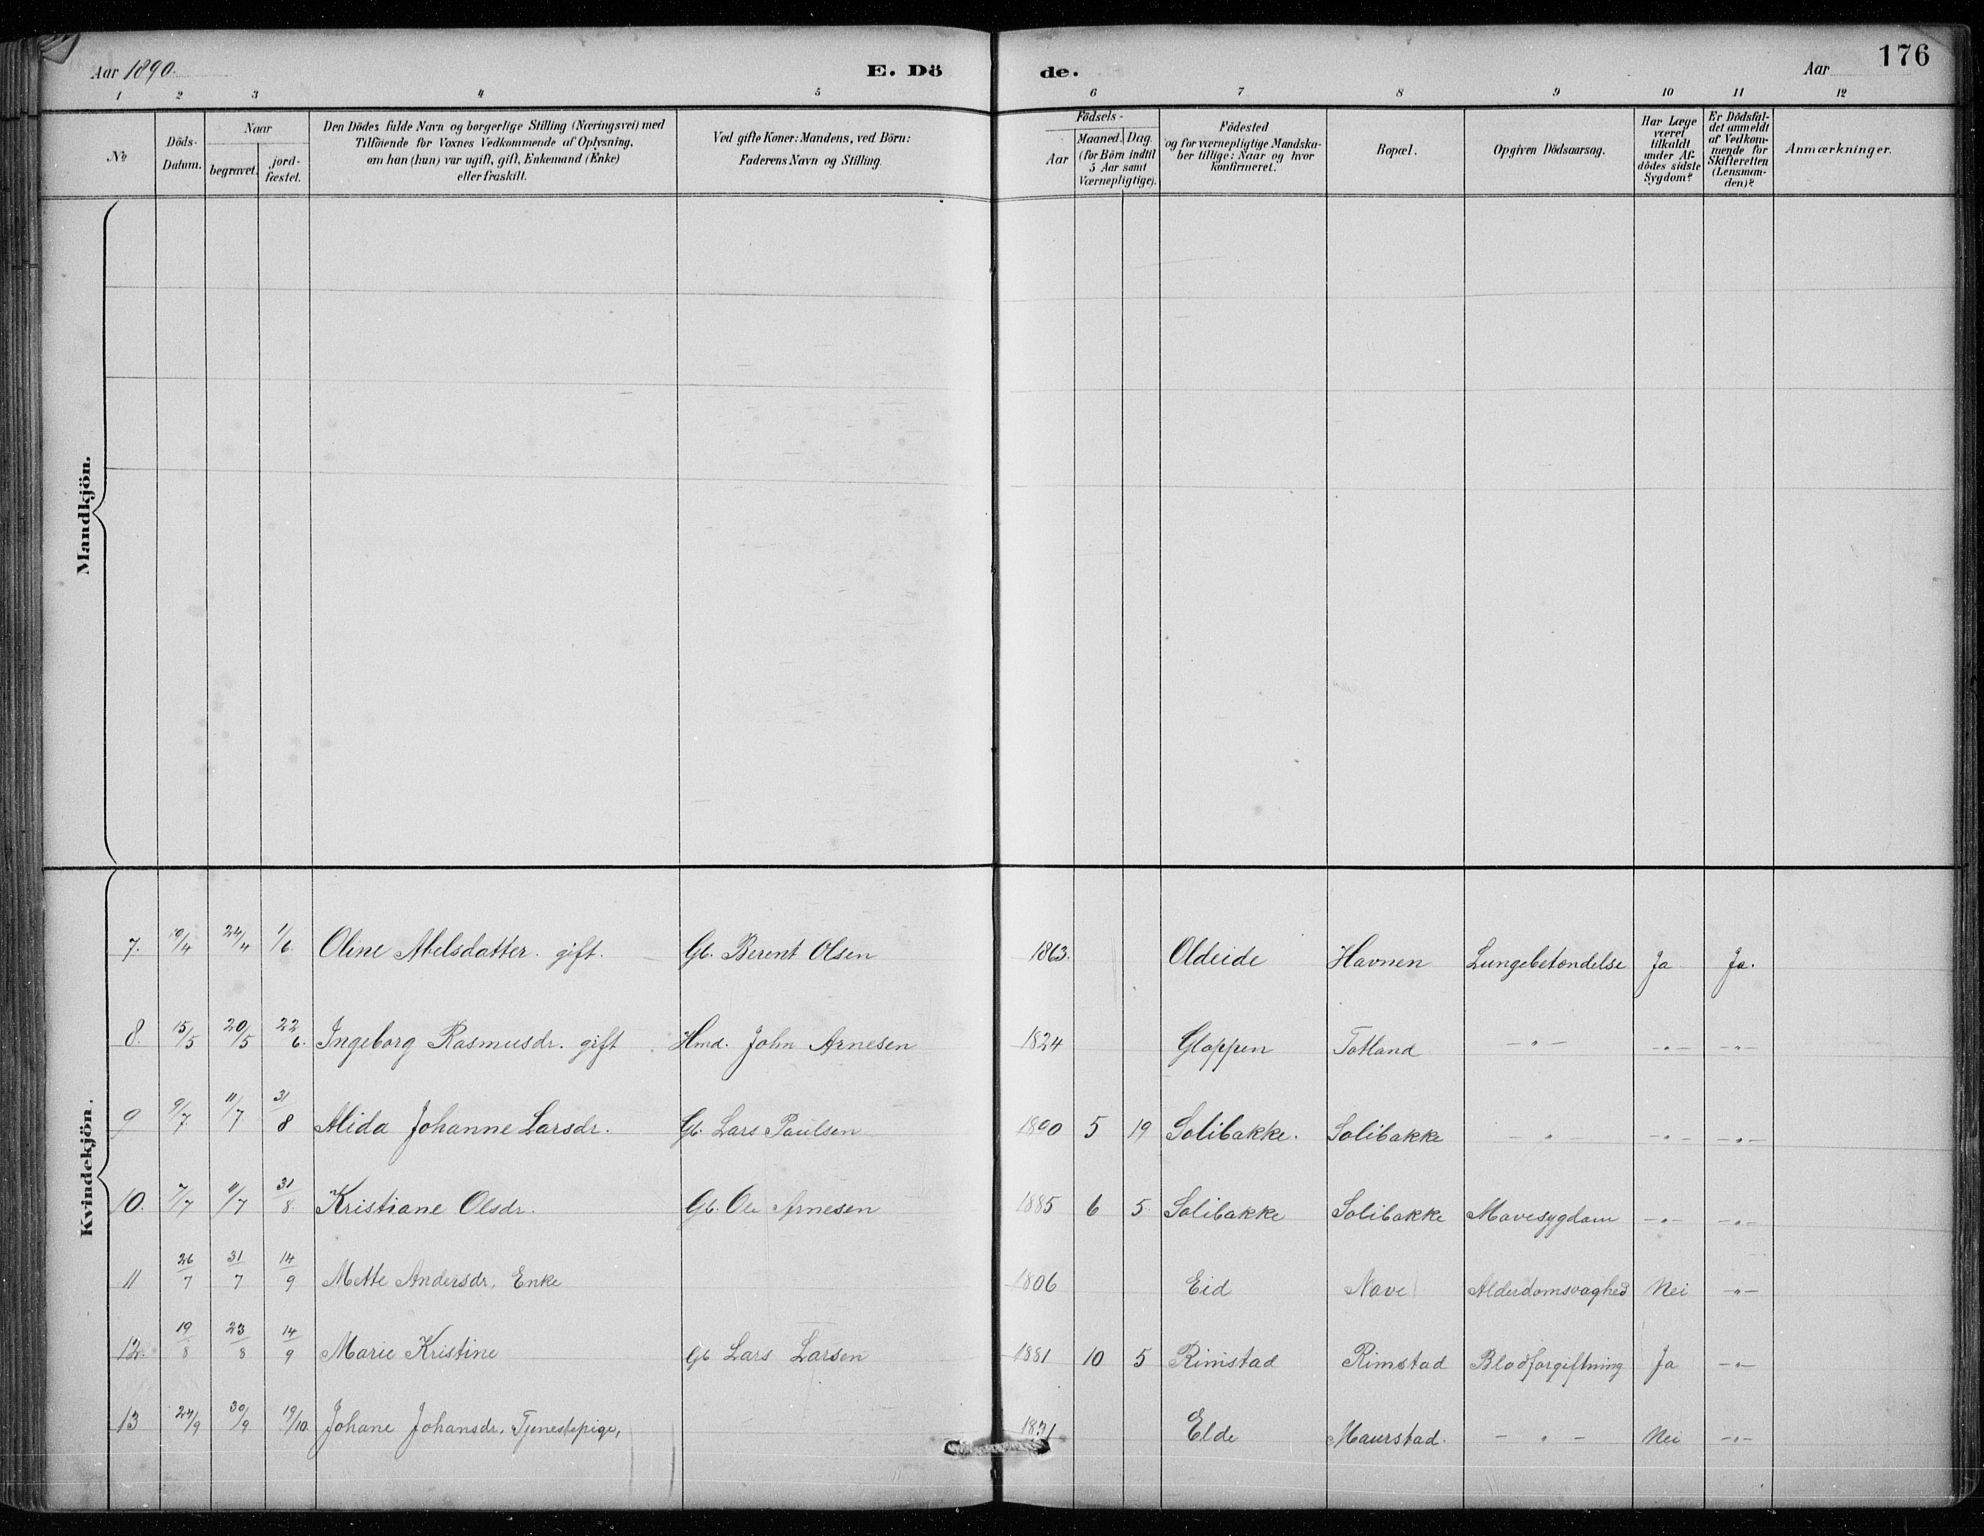 Aar 1890. E. Dö de. Aar 176
1 2 3 4 5 6 7 8 9 10 11 12
No
Döds-Datum.
Naar
begravet. jord-fæstet.
Den Dödes fulde Navn og borgerlige Stilling (Næringsvei) med
Tilföiende for Voxnes Vedkommende af Oplysning,
om han (hun) var ugift, gift, Enkemand (Enke)
eller fraskilt.
Ved gifte Koner: Mandens, ved Börn:
Faderens Navn og Stilling.
Födsels-
Aar Maaned. Dag.
(for Börn indtil
5 Aar samt
Værnepligtige).
Födested
og for værnepligtige Mandska-
ber tillige: Naar og hvor
konfirmeret.
Bopæl.
Opgiven Dödsaarsag.
Har Læge
været
tilkaldt
under Af-
dödes sidste
Sygdom?
Er Dödsfal-
det anmeldt
af Vedkom-
mende for
Skifteretten
(Lensman-
den)?
Anmærkninger.
Mandkjön.
Kvindekjön.
7. 10/4 24/4 1/6. Oline Abelsdatter. gift. Gb. Berent Olsen 1863. Oldeide Havnen Lungebetændelse Ja Ja.
8. 15/5 20/5 22/6. Ingeborg Rasmusdr. gift Hmd. John Arnesen 1824 Gloppen Totland -"- -"- -"-
9 9/7 11/7 31/8 Alida Johanne Larsdr. Gb. Lars Paulsen 1890 5 19 Solibakke. Solibakke -"- -"- -"-
10. 7/7 11/7 31/8. Kristiane Olsdr. Gb. Ole Arnesen 1885 6 5. Solibakke Solibakke Mavesygdom -"- -"-
11 26/7 31/7 14/9 Mette Andersdr. Enke 1806 Eid Nave Alderdomsvaghed Nei -"-
12. 19/8 23/8 14/9 Marie Kristine Gb Lars Larsen 1881 10 5 Rimstad Rimstad Blodforgiftning Ja -"-
13 24/9 30/9 19/10. Johane Johansdr. Tjenestepige, Elde Maurstad. -"- Nei -"-